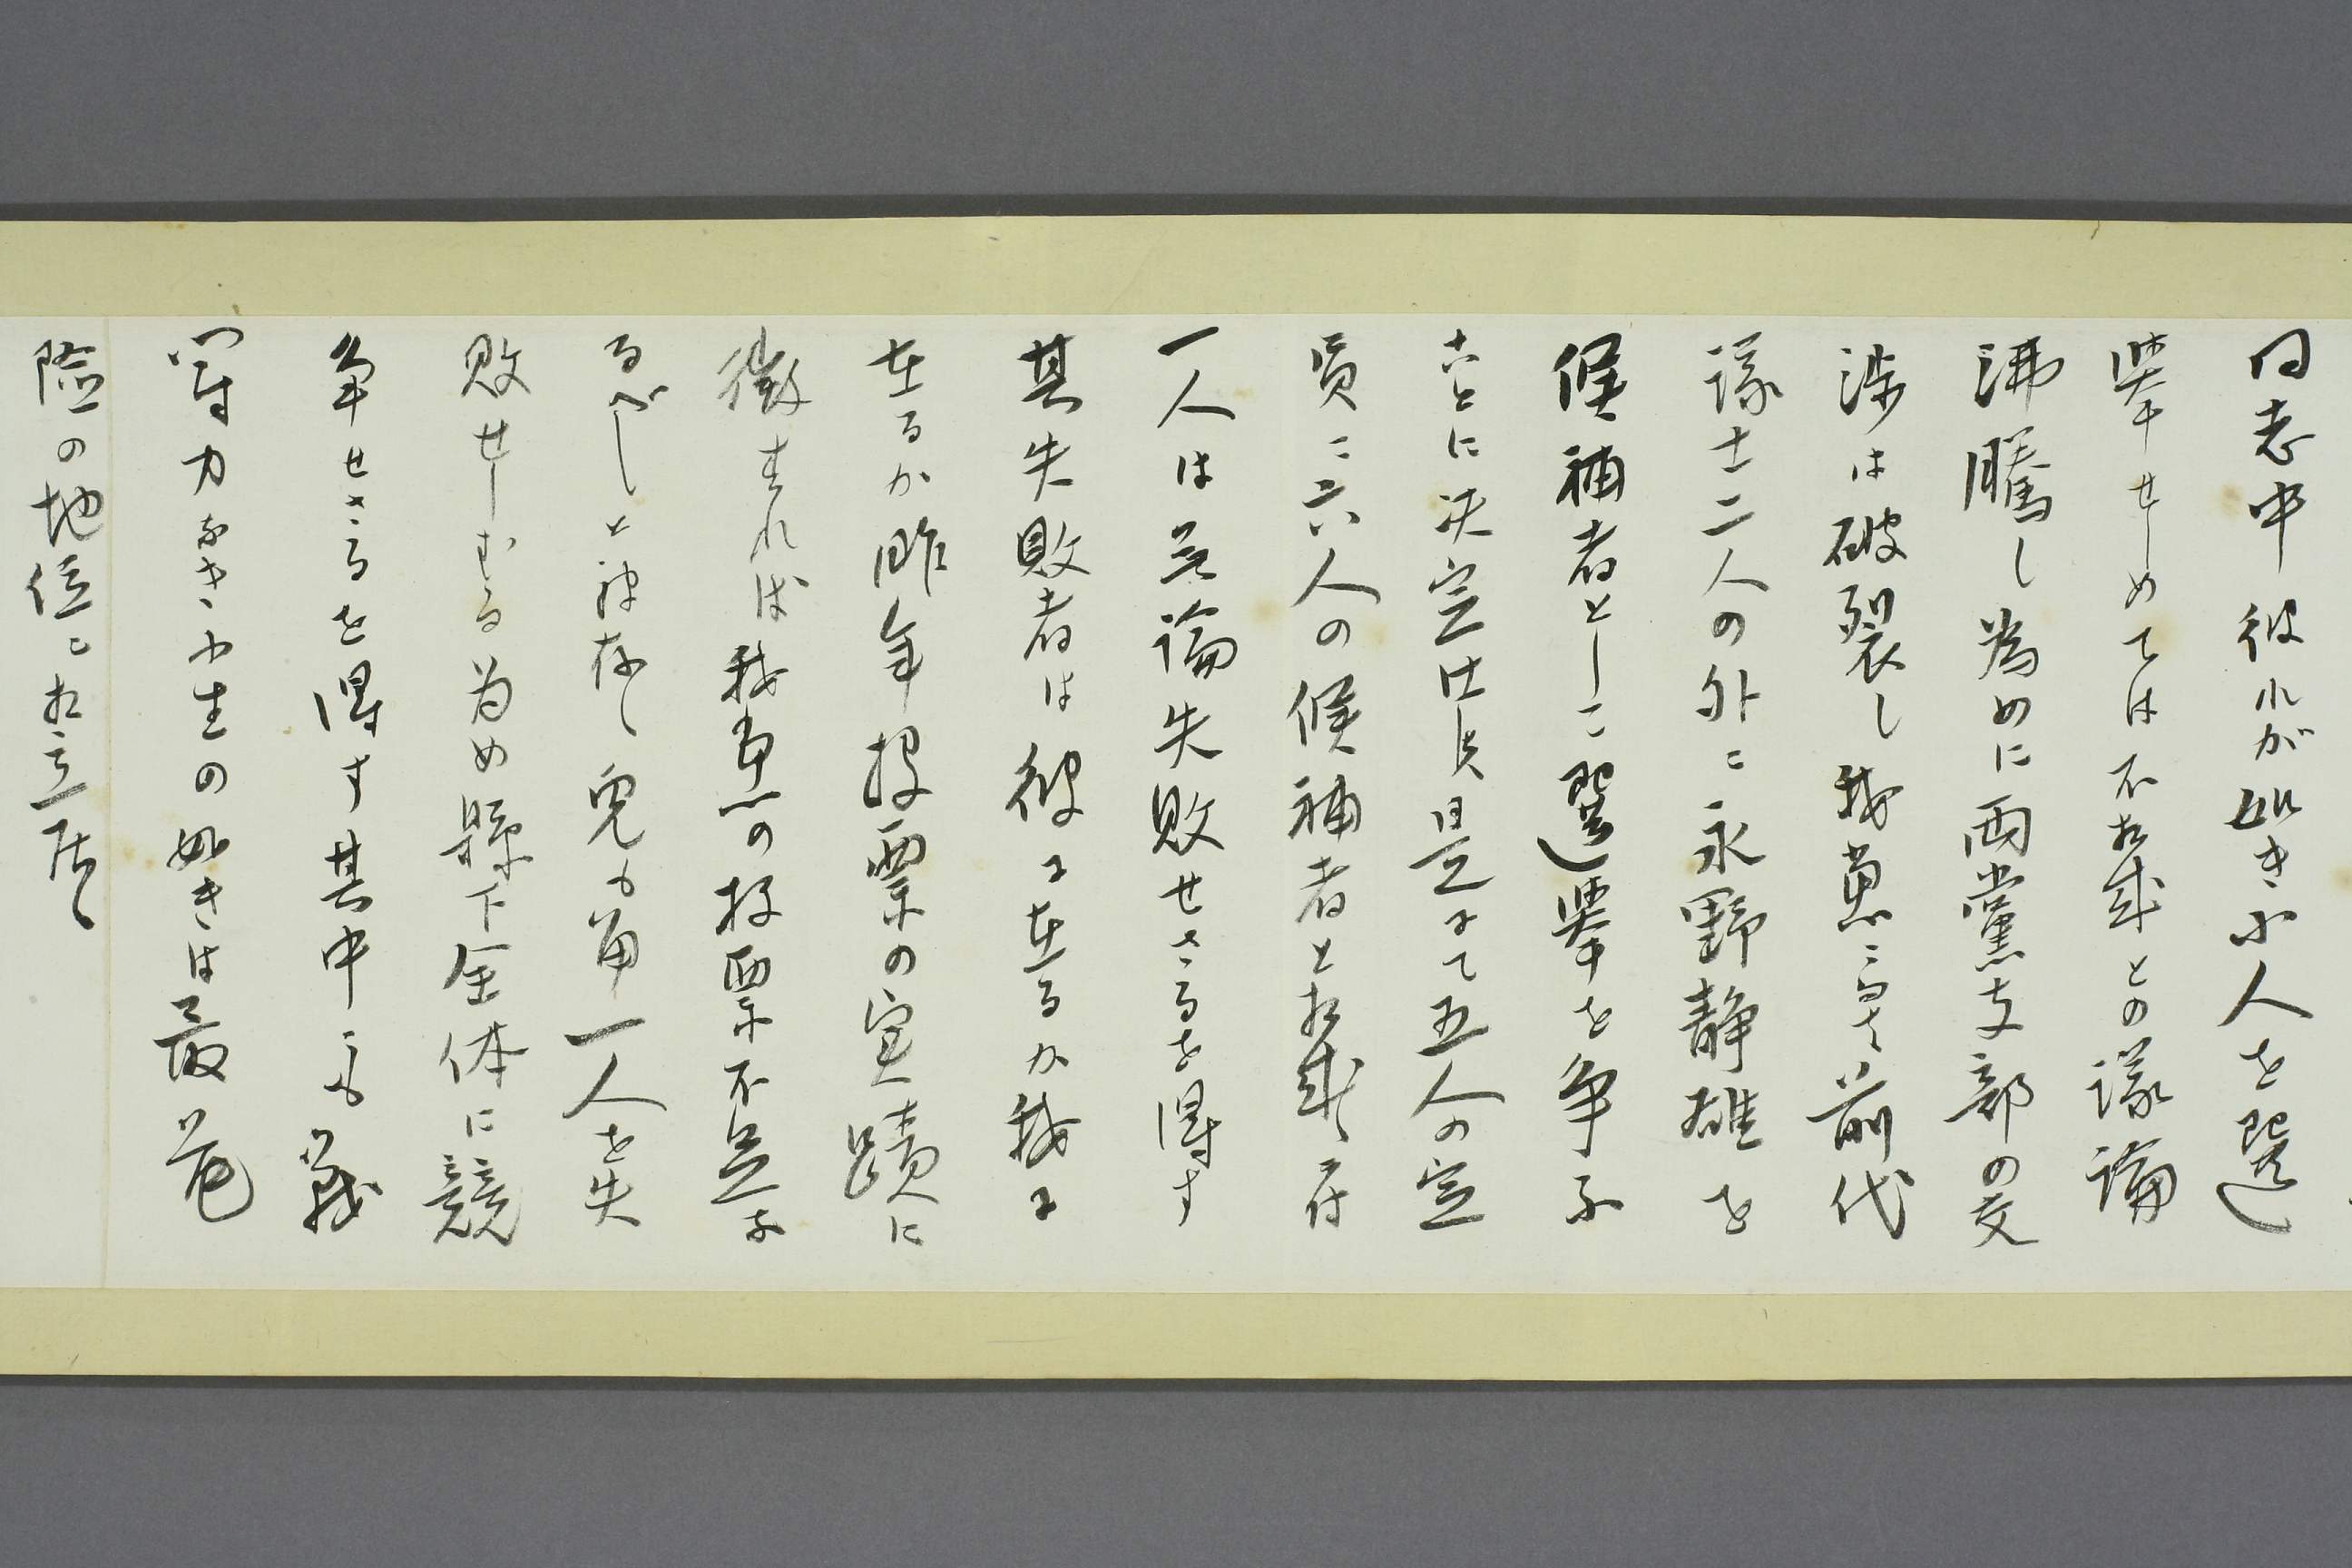 同志中彼れが如き小人を選
挙せしめては不相成との議論
沸騰し為めに両党支部の交
渉は破裂し我党ニ而ハ前代
議士二人の外ニ永野静雄を
候補者としこ選挙を争ふ
ことに决定仕候是にて五人の定
員ニ六人の候補者と相成候間
一人は無論失敗せさるを得す
其失敗者は彼に在るか我に
在るか昨年投票の実蹟に
徴すれは我党の投票不足な
るべしと被存候兎も角一人を失
敗せしむる為め縣下全体に競
争せさるを得す其中ニも戦
闘力なき小生の如きは最危
険の地位に相立居候